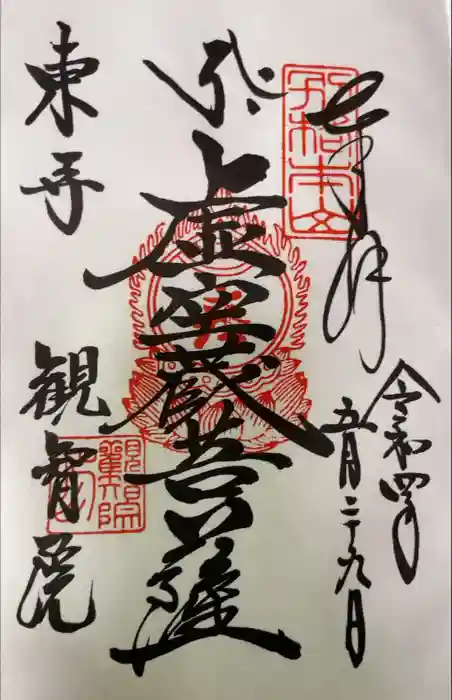 奉拝
別格本山
令和四年
五月二十九日
虚空蔵菩薩
東寺
観智院